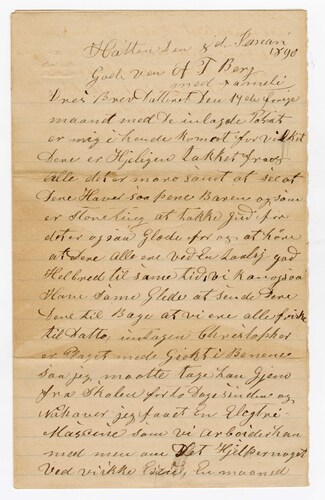 Hatten den 8d Januari
1890
Gode ven A T Berg
med Fameli
Dres Brev Datteret den 14de forige
maaned med de inlagde Potræt
er mig i hende komet for vilket
Dere er Hjeligen takket fraas
alle det er moro samt at see at
Dere Haver saa pene Baren og som
er store ting at takke Gud for
det er og saa Glede for os at höre
at Dere alle ere ved En taalig god
Helbred til same tid, vi kan ogsaa
Have same Glede at sende Dere
Dere til Bage at vi ere alle friske
til Datto, intagen Christopher
er Plaget mede Geikt i Benene
saa jeg maatte tage han Hjem
fra Skolen for to Dage sindne og
Nu haver jeg faaet En Elegtri-
Mascine som vi arbeider han
med men om det Hjelper noget
Ved vi ikke End, En maaned